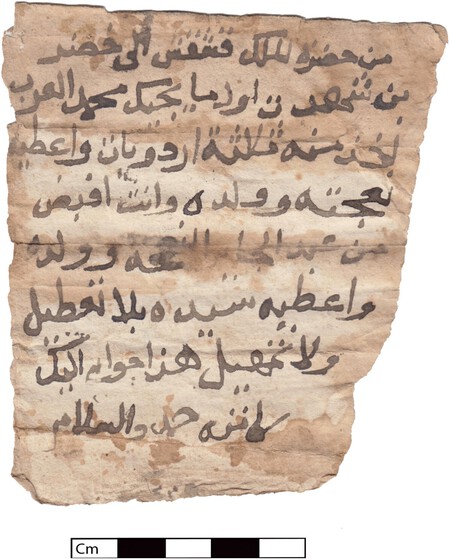 من حضرة الملك قشقش الى خضر
بن شهدت اول ما يجيك محمد العرب
تخذ منه ثلاثة اردويات واعطيه
نعجته وولده وانت اقبض
من عبد النعجه وولده
واعطيه سيده بلا تعطيل
ولا تمهيل هذا جوابي اليك
والسلام
Cm